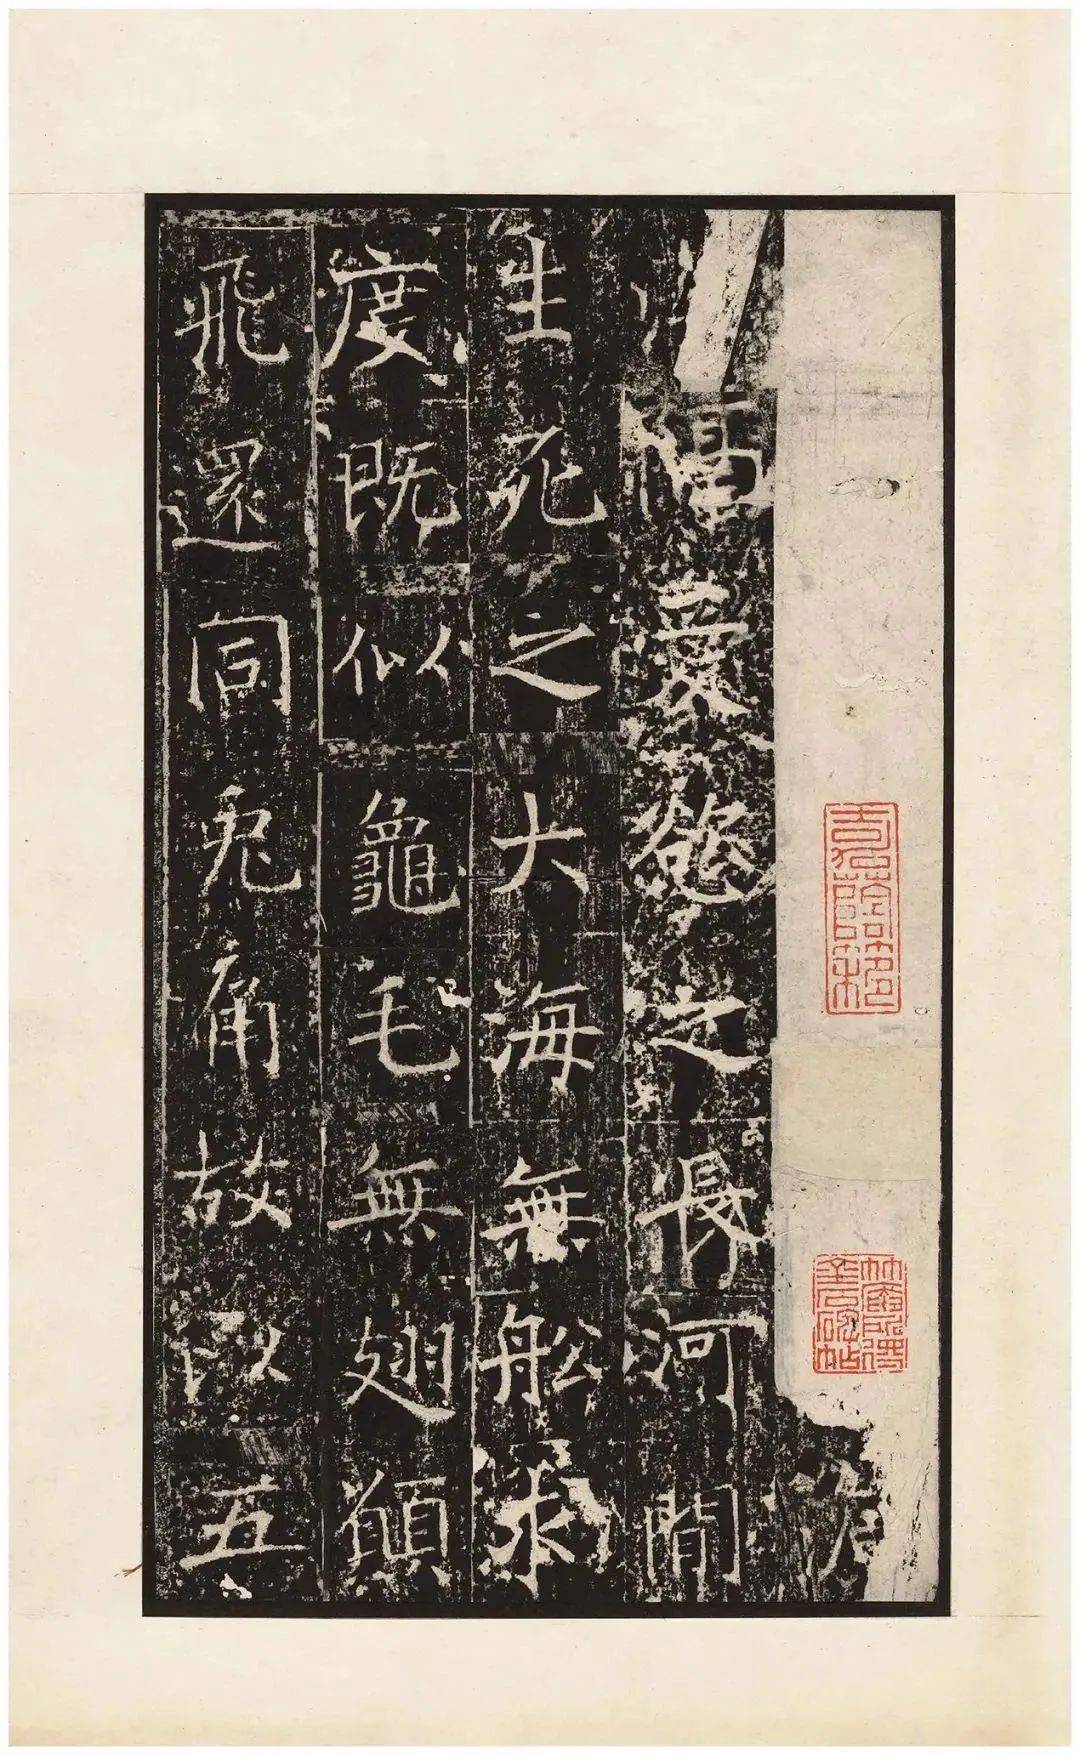 愛慾之長河間
生死之大海無船求
度既似龜毛無翅願
飛還同兔角故以五